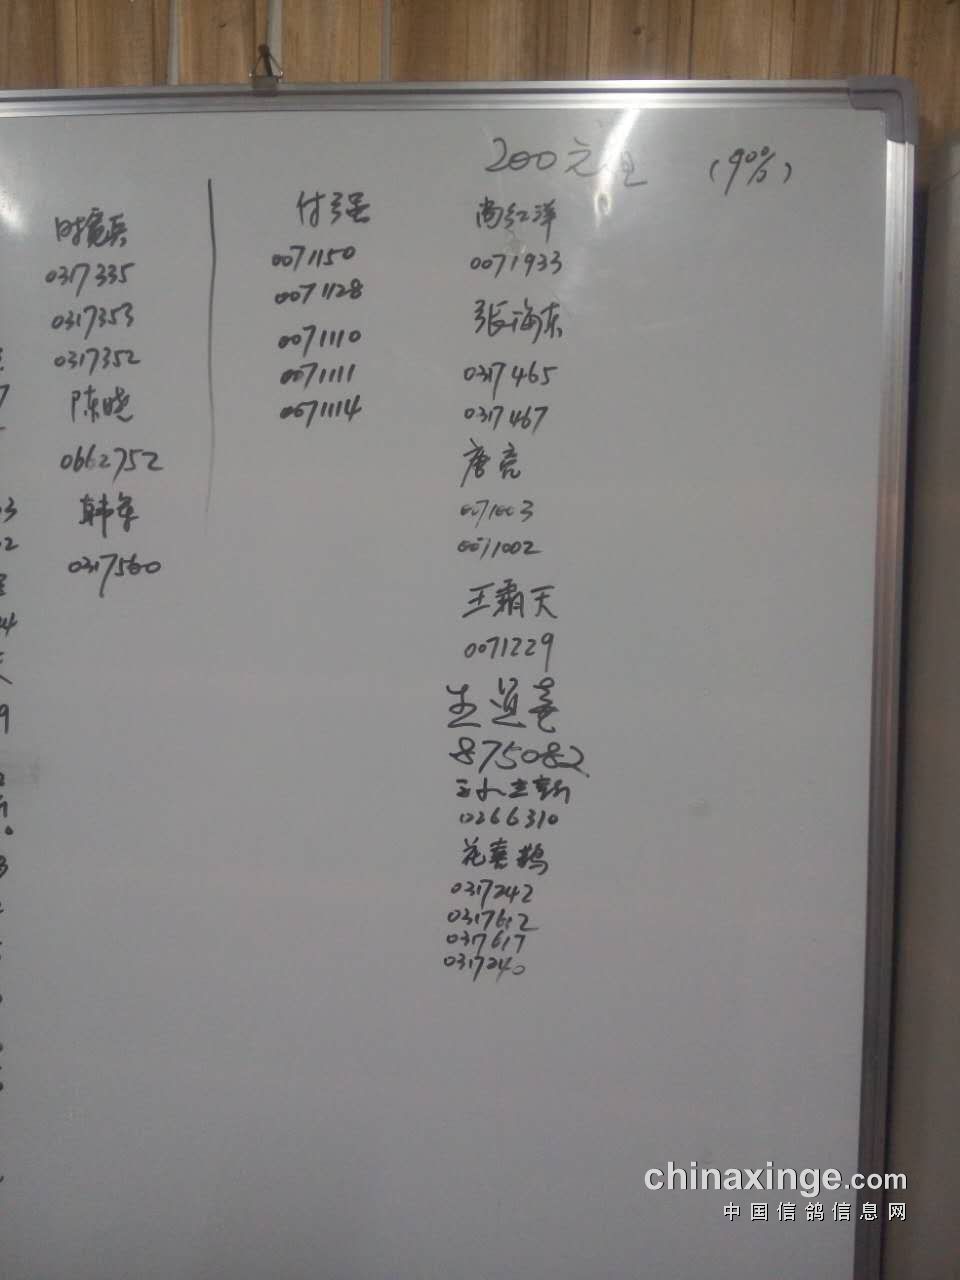 200元
(90%)
0317335
0317353
0317352
陈晓
0662752
韩军
0317560
付强
0071150
0071128
0071110
0071111
0071114
尚红洋
0071933
张海东
0317465
0317467
唐亮
0071003
0071002
王霸天
0071229
875082
0266310
花喜鹊
0317242
0317612
0317617
0317240
chinaxinge.com
中国信鸽信息网